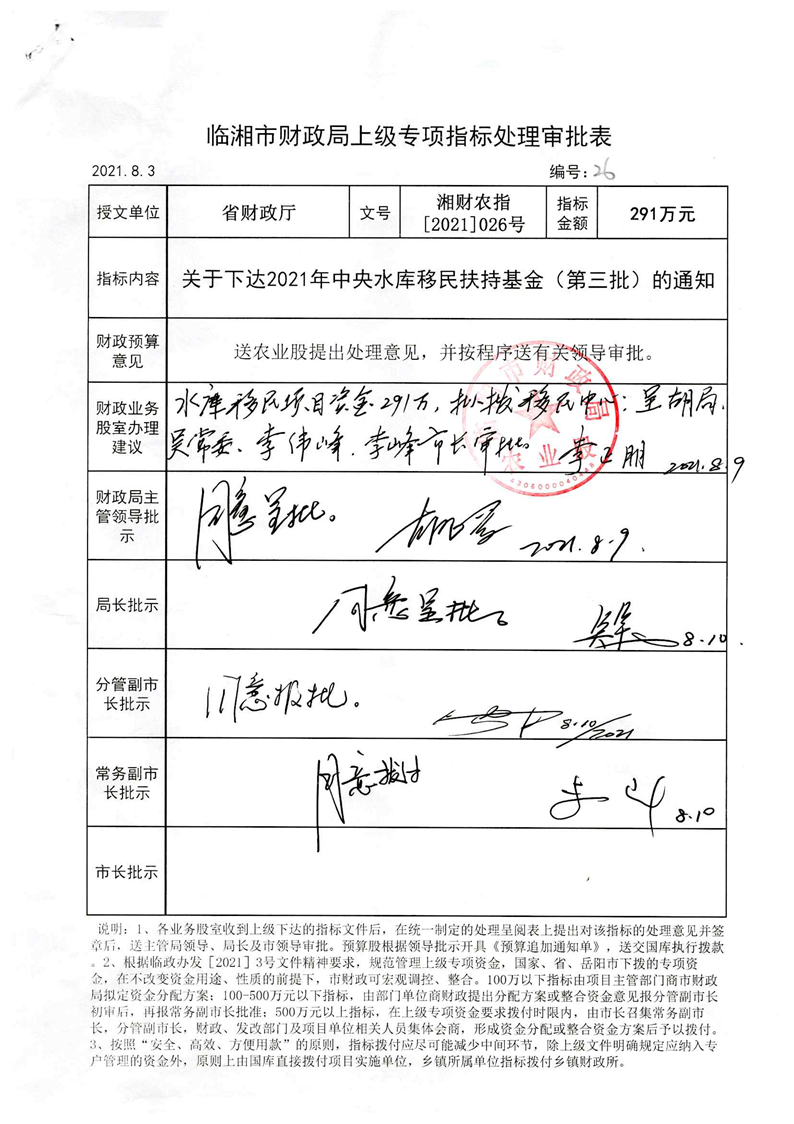 临湘市财政局上级专项指标处理审批表
2021.8.3 编号:26
授文单位 省财政厅 文号 湘财农指[2021]026号 指标金额 291万元
指标内容 关于下达2021年中央水库移民扶持基金（第三批）的通知
财政预算意见 送农业股提出处理意见，并按程序送有关领导审批。
财政业务股室办理建议 水库移民项目资金291万，拟拨移民中心；呈胡局、
吴常委、李伟峰、李峰市长审批。 李正朋 2021.8.9
市财政局
农业股
4306000040448
财政局主管领导批示 同意呈批。 2021.8.9.
局长批示 同意呈批。 8.10.
分管副市长批示 同意报批。 8.10/2021
常务副市长批示 同意拨付 8.10
市长批示
说明：1、各业务股室收到上级下达的指标文件后，在统一制定的处理呈阅表上提出对该指标的处理意见并签
章后，送主管局领导、局长及市领导审批。预算股根据领导批示开具《预算追加通知单》，送交国库执行拨款
。2、根据临政办发[2021]3号文件精神要求，规范管理上级专项资金，国家、省、岳阳市下拨的专项资
金，在不改变资金用途、性质的前提下，市财政可宏观调控、整合。100万以下指标由项目主管部门商市财政
局拟定资金分配方案；100-500万元以下指标，由部门单位商财政提出分配方案或整合资金意见报分管副市长
初审后，再报常务副市长批准；500万元以上指标，在上级专项资金要求拨付时限内，由市长召集常务副市
长，分管副市长，财政、发改部门及项目单位相关人员集体会商，形成资金分配或整合资金方案后予以拨付。
3、按照“安全、高效、方便用款”的原则，指标拨付应尽可能减少中间环节，除上级文件明确规定应纳入专
户管理的资金外，原则上由国库直接拨付项目实施单位，乡镇所属单位指标拨付乡镇财政所。